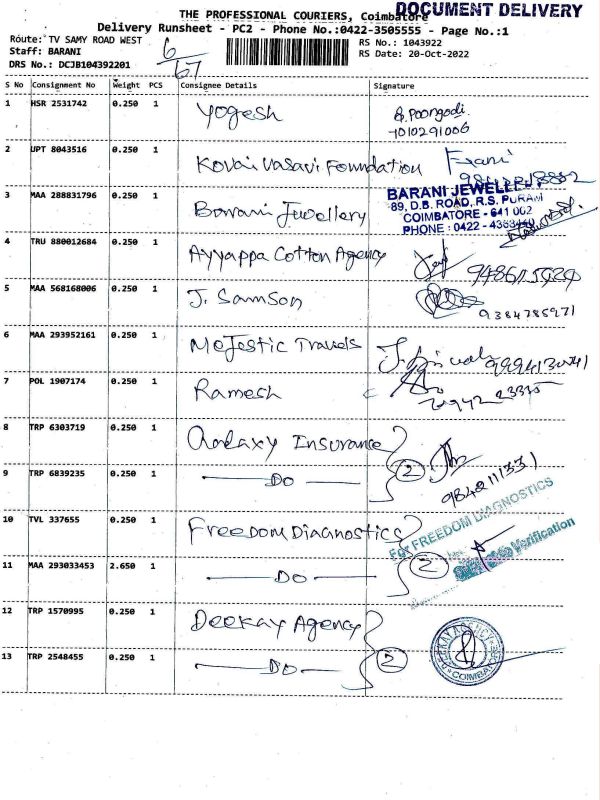 DOCUMENT DELIVERY
THE PROFESSIONAL COURIERS, Coimbatore
Delivery Runsheet - PC2 - Phone No.:0422-3505555 - Page No.:1
Route: TV SAMY ROAD WEST
6/67
RS No.: 1043922
Staff: BARANI
RS Date: 20-Oct-2022
DRS No.: DCJB104392201
S No Consignment No Weight PCS Consignee Details Signature
1 HSR 2531742 0.250 1 Yogesh G. Poongodi
7010291006
2 UPT 8043516 0.250 1 Kovai Vasavi Foundation
3 MAA 288831796 0.250 1 Barani Jewellery
BARANI JEWELLERY
89, D.B. ROAD, R.S. PURAM
COIMBATORE - 641 002
PHONE : 0422 -
4 TRU 880012684 0.250 1 Ayyappa Cotton Agency
5 MAA 568168006 0.250 1 J. Samson
9384785271
6 MAA 293952161 0.250 1 Mejestic Travels
7 POL 1907174 0.250 1 Ramesh
8 TRP 6303719 0.250 1 Galaxy Insurance
9 TRP 6839235 0.250 1 DO 2
9842111331
10 TVL 337655 0.250 1 Freedom Diagnostics
For FREEDOM DIAGNOSTICS
Verification
11 MAA 293033453 2.650 1 DO 2
12 TRP 1570995 0.250 1 Deekay Agency
13 TRP 2548455 0.250 1 DO 2